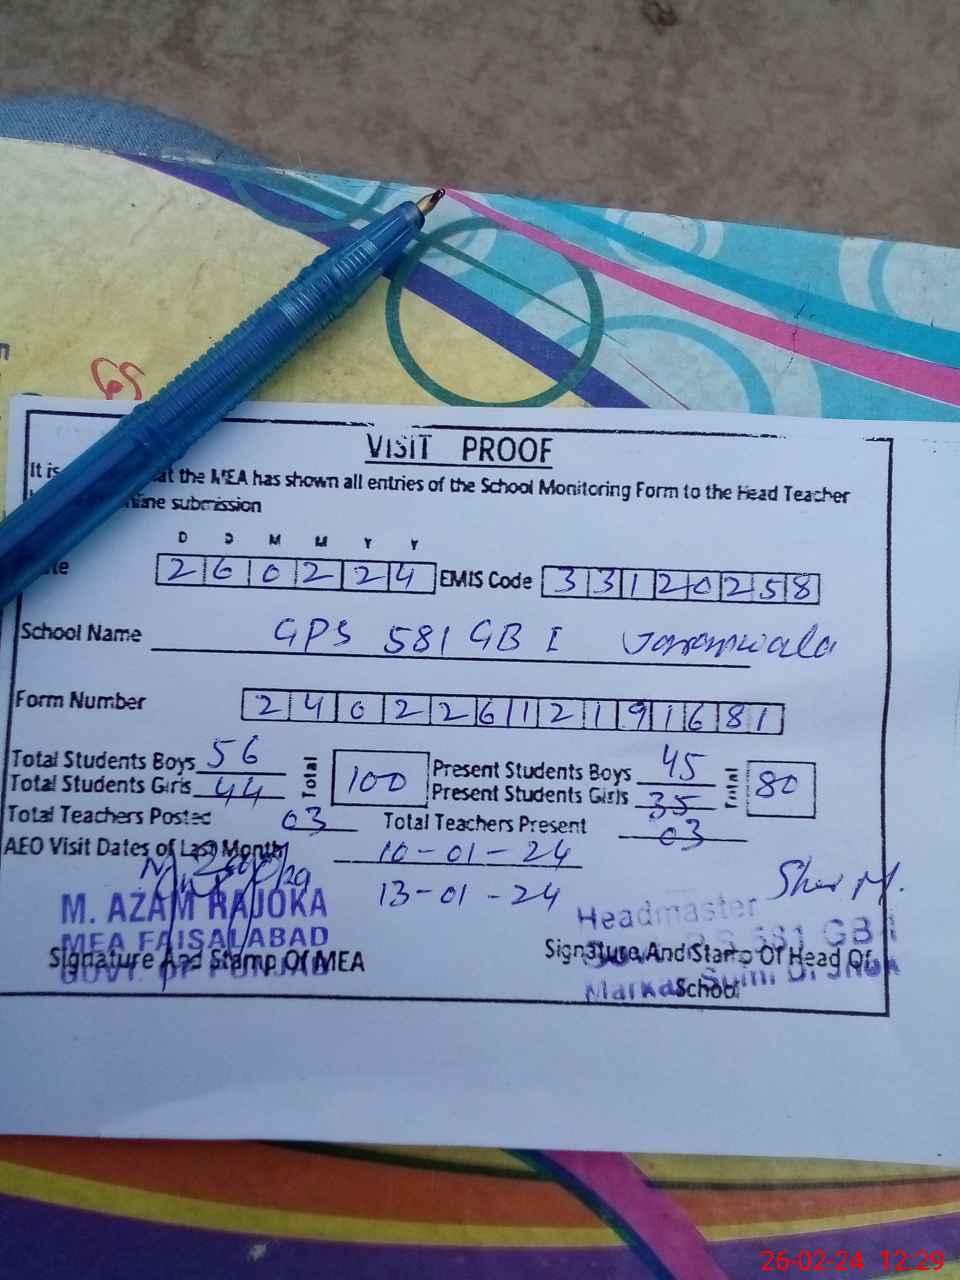 VISIT PROOF
It is at the MEA has shown all entries of the School Monitoring Form to the Head Teacher
line submission
D D M M Y Y
260224 EMIS Code 33120258
School Name GPS 581 GB I
Form Number 24022612191681
Total Students Boys 56 Total 100 Present Students Boys 45 Total 80
Total Students Girls 44 Present Students Girls 35
Total Teachers Posted 03 Total Teachers Present 03
AEO Visit Dates of Last Month 10-01-24
13-01-24
M. AZAM RAJOKA
MEA FAISALABAD
GOVT. OF PUNJAB
Signature And Stamp Of MEA
Headmaster
581 GB
Markaz
Signature And Stamp Of Head Of
School
26-02-24 12:29